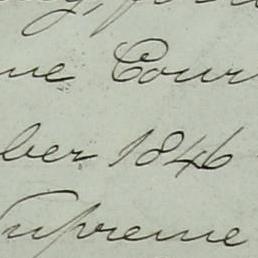 me Cour
ber 1846
Supreme